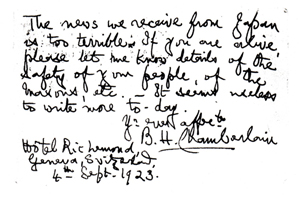 The news we receive from Japan
is too terrible. If you are alive
please let me know details of the
safety of your people, of the
Masons etc. — It seems useless
to write more to-day.
Yrs ever affec
B. H. Chamberlain
Hotel Richemond,
Geneva, Switzerland.
4th Sept. 1923.